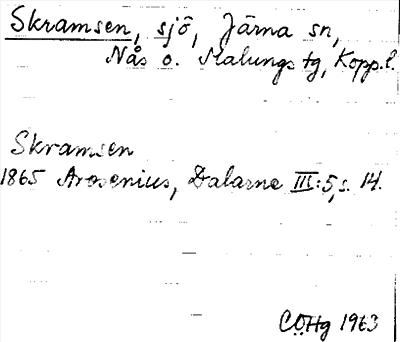 Skramsen, sjö, Järna sn,
Nås o. Malungs tg, Kopp.l.
Skramsen
1865 Arosenius, Dalarne III:5, s. 14.
CÖHg 1963